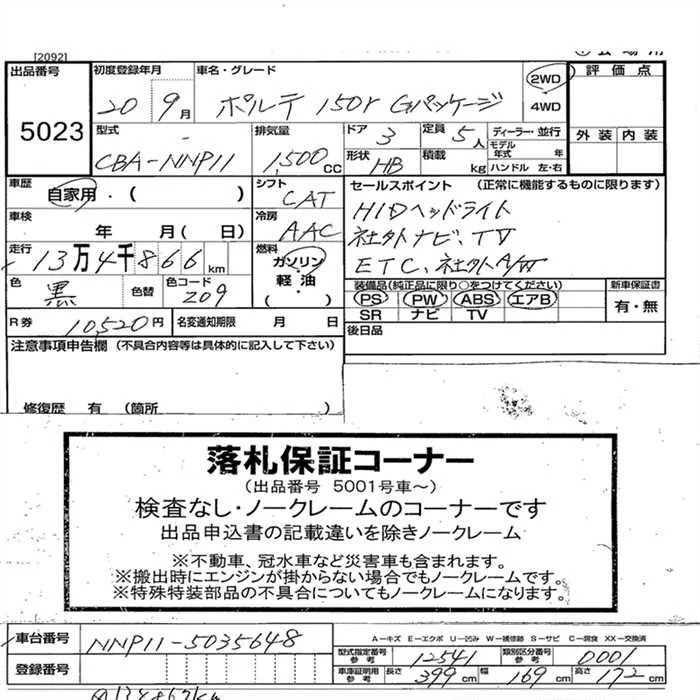 [2092]
出品番号 5023
初度登録年月 20 9月
車名・グレード ポルテ 150r Gパッケージ
2WD
4WD
評価点
外装 内装
型式 CBA-NNP11
排気量 1,500 CC
ドア 3
形状 HB
定員 5人
積載 kg
ディーラー・並行
モデル年式 年
ハンドル 左・右
車歴 自家用・( )
シフト CAT
車検 年 月( 日)
冷房 AAC
走行 13万4千866km
燃料 ガソリン・軽油・( )
色 黒 色替 色コード 209
R券 10,520円 名変通知期限 月 日
セールスポイント (正常に機能するものに限ります)
HIDヘッドライト
社外ナビ、TV
ETC、社外A/W
装備品(純正品に限り○をつけてください)
PS PW ABS エアB
SR ナビ TV
新車保証書
有・無
後日品
注意事項申告欄 (不具合内容等は具体的に記入して下さい)
修復歴 有 (箇所 )
落札保証コーナー
(出品番号 5001号車~)
検査なし・ノークレームのコーナーです
出品申込書の記載違いを除きノークレーム
※不動車、冠水車など災害車も含まれます。
※搬出時にエンジンが掛からない場合でもノークレームです。
※特殊特装部品の不具合についてもノークレームになります。
車台番号 NNP11-5035648
登録番号
A-キズ E-エクボ U-凹み W-補修跡 S-サビ C-腐食 XX-交換済
型式指定番号参考 12541 類別区分番号参考 0001
車庫証明用参考 長さ 399cm 幅 169cm 高さ 172cm